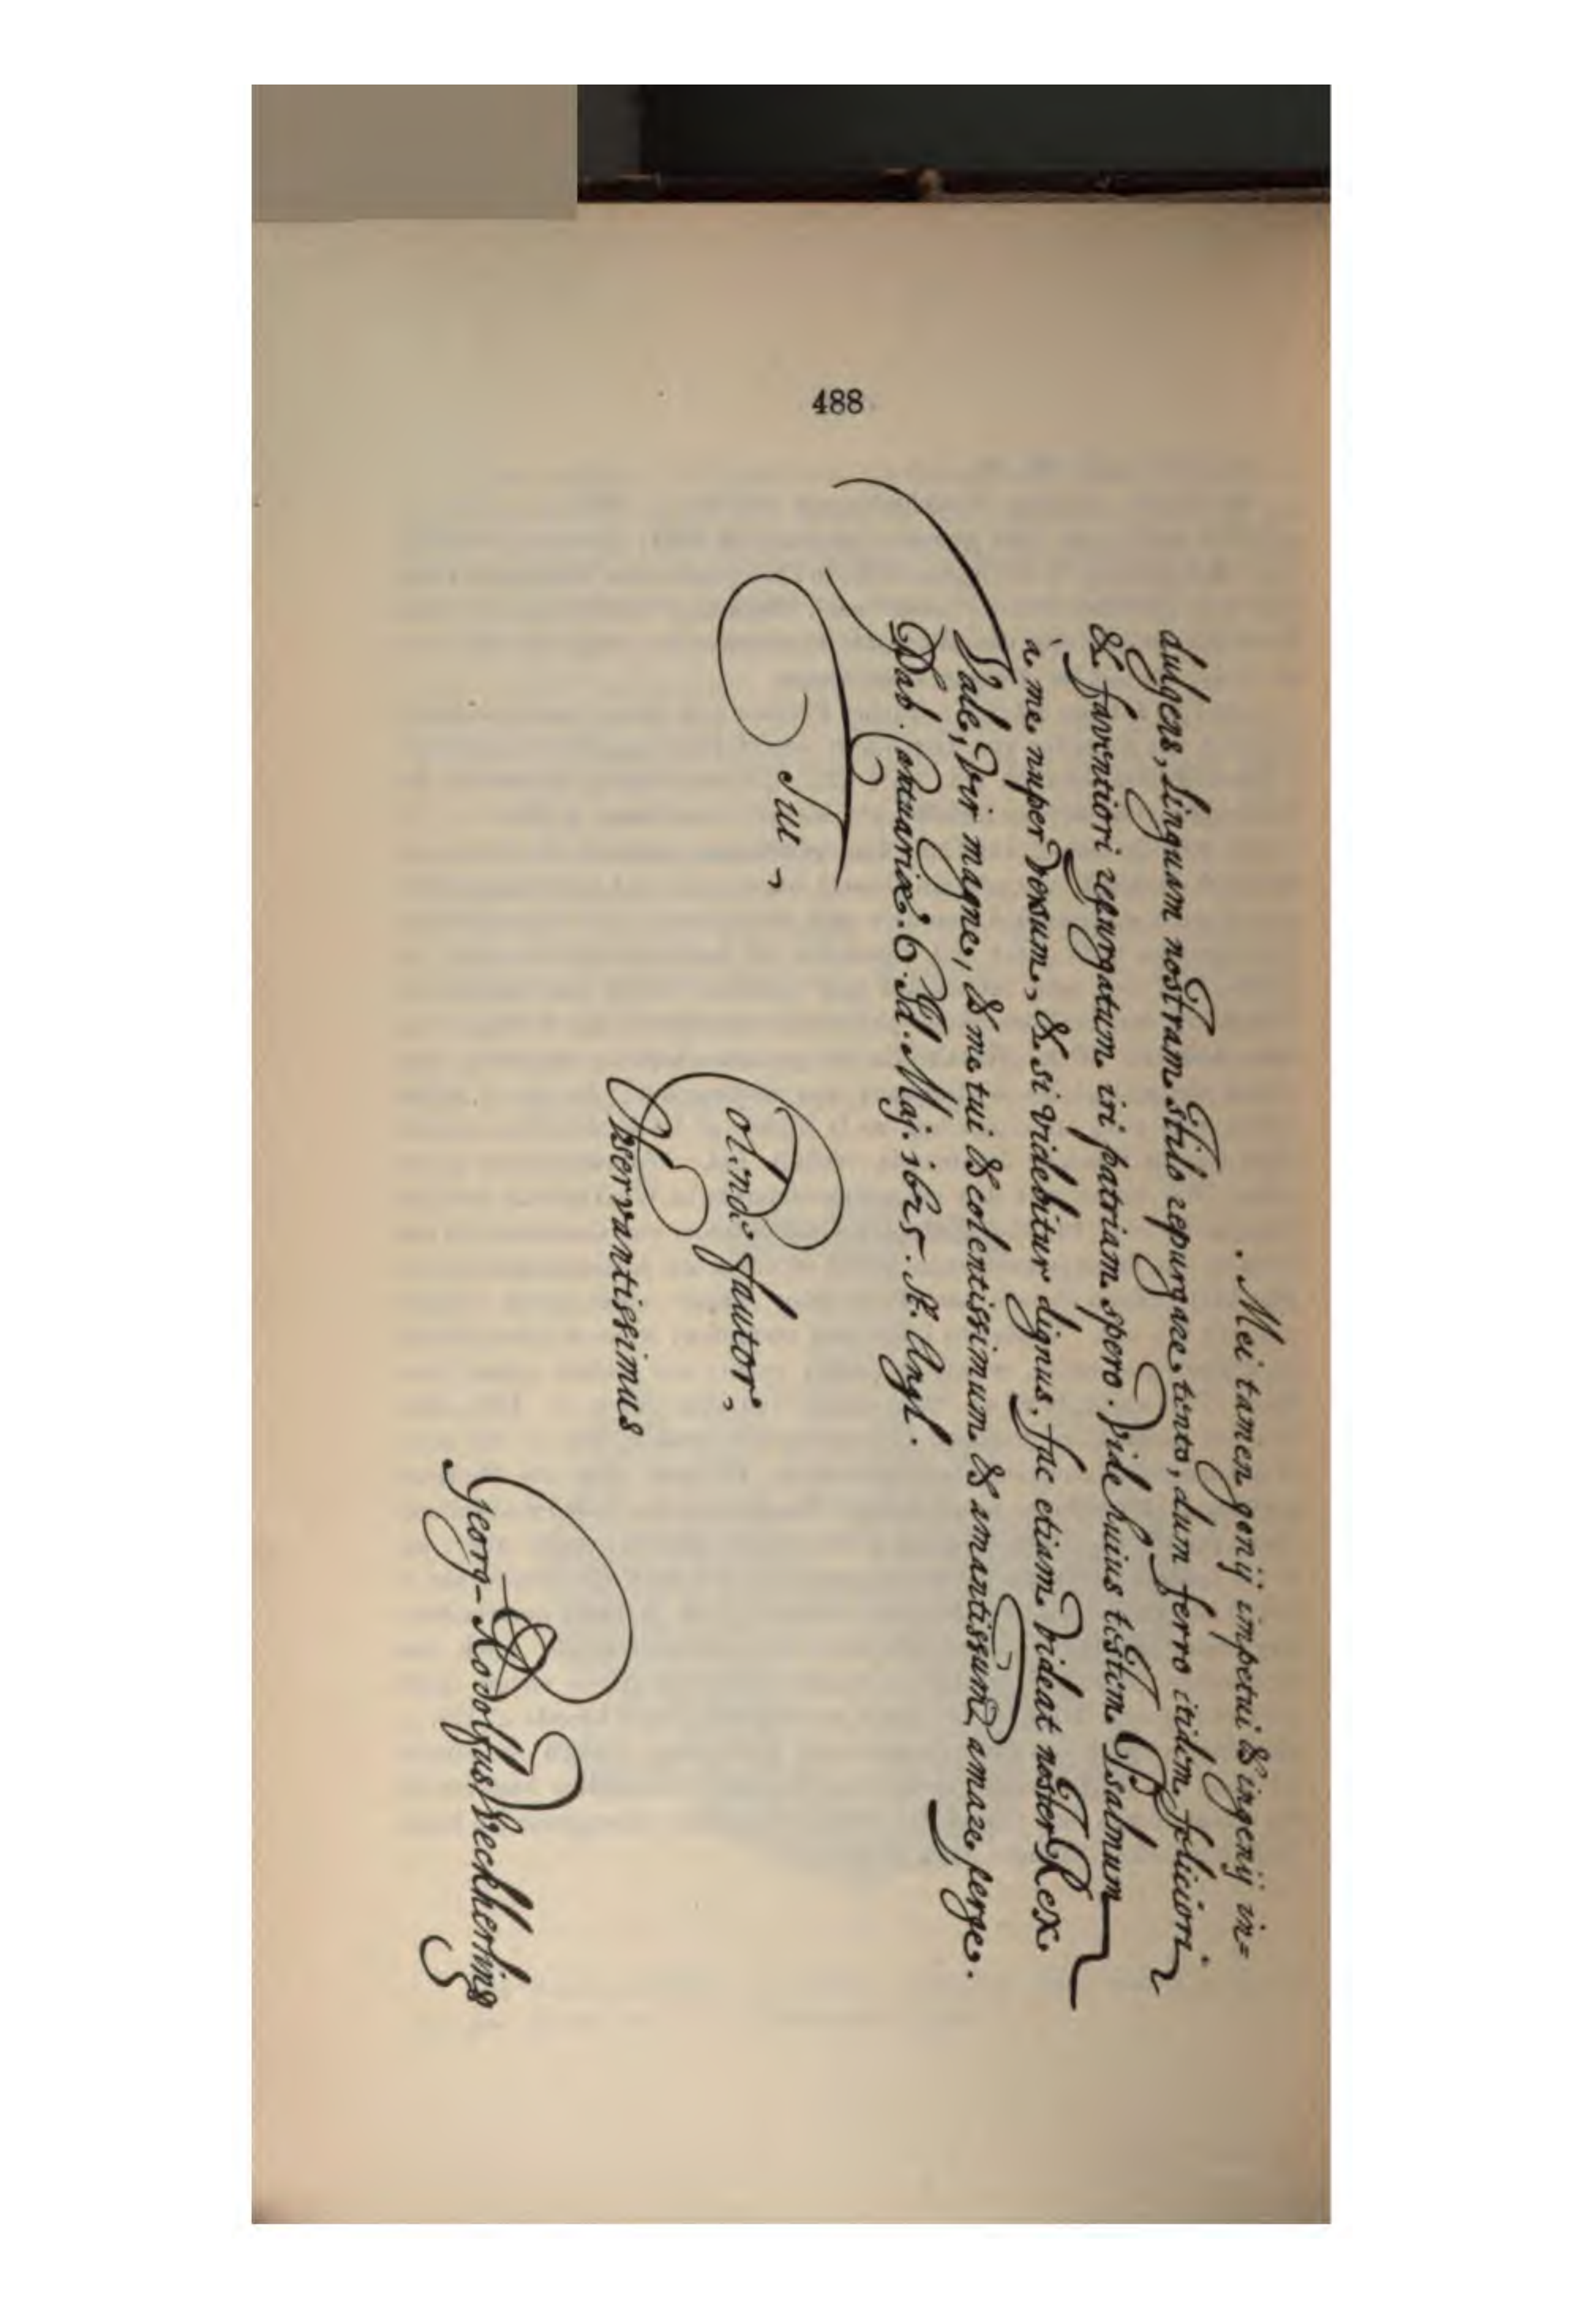 488
. Mei tamen genij impetui & ingenij in=
dulgens, linguam nostram stilo repurgare tento, dum ferro itidem feliciori
& faventiori repurgatum iri patriam spero. Vide huius testem Psalmum
à me nuper versum, & si videbitur dignus, fac etiam videat noster Rex.
Vale, Vir magne, & me tui & colentissimum & amantissimū amare perge.
Dab. Cantuariæ. 6. Id. Maj. 1625. St. Angl.
Tui,
Fautor,
Observantissimus
Georg-Rodolfus Weckherlin9